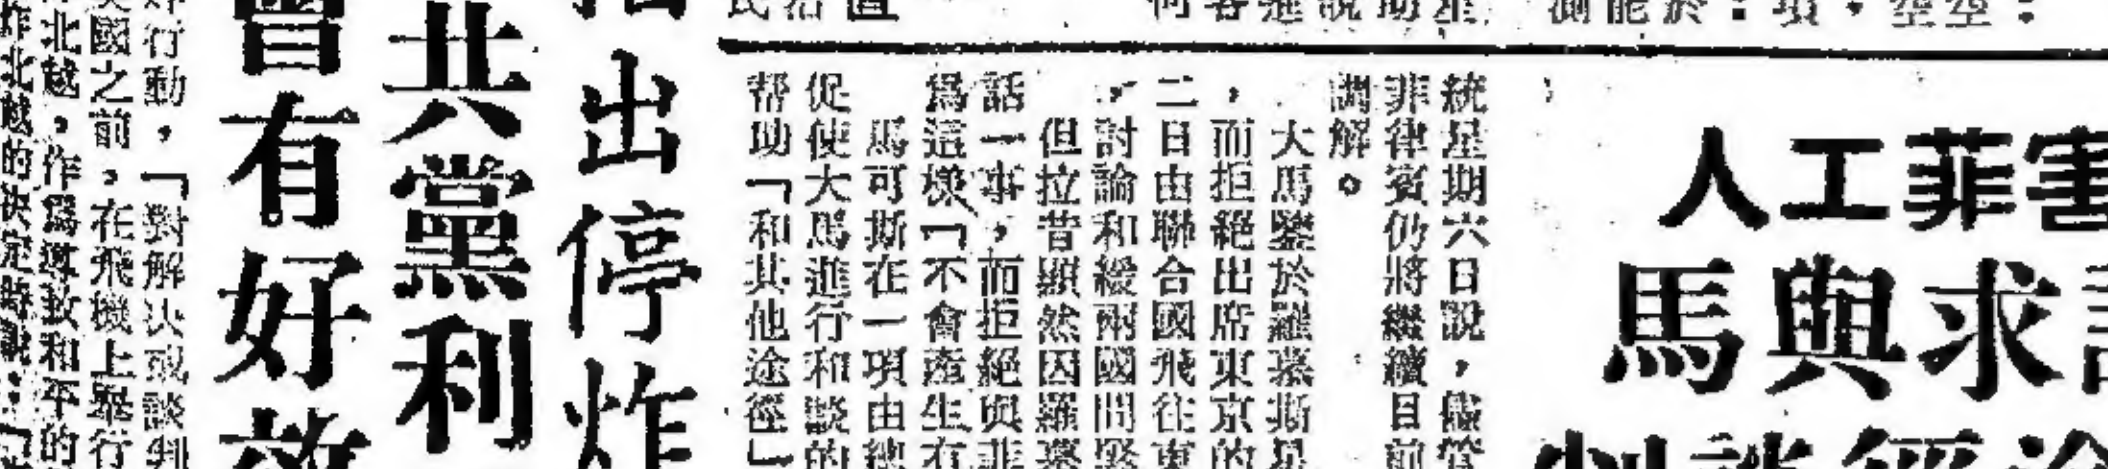 害菲工人
求與馬
統星期六日說，儘管
菲律賓仍將繼續目前
調解。
大馬鑒於羅慕斯星
，而拒絕出席東京的
二日由聯合國飛往東
，討論和緩兩國間緊
但拉昔顯然因羅慕
話一事，而拒絕與菲
爲這樣「不會產生有
馬可斯在一項由總
促使大馬進行和談的
帮助「和其他途徑」
出停炸
共黨利
曾有好
行動，「對解決或談判
國之前，在飛機上舉行
北越，作爲導致和平的
炸北越的決定